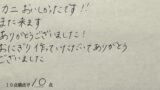 カニ おいしかったです!!
また来ます
ありがとうございました!
おにぎり作っていただいてありがとう
ございました
10点満点で10点